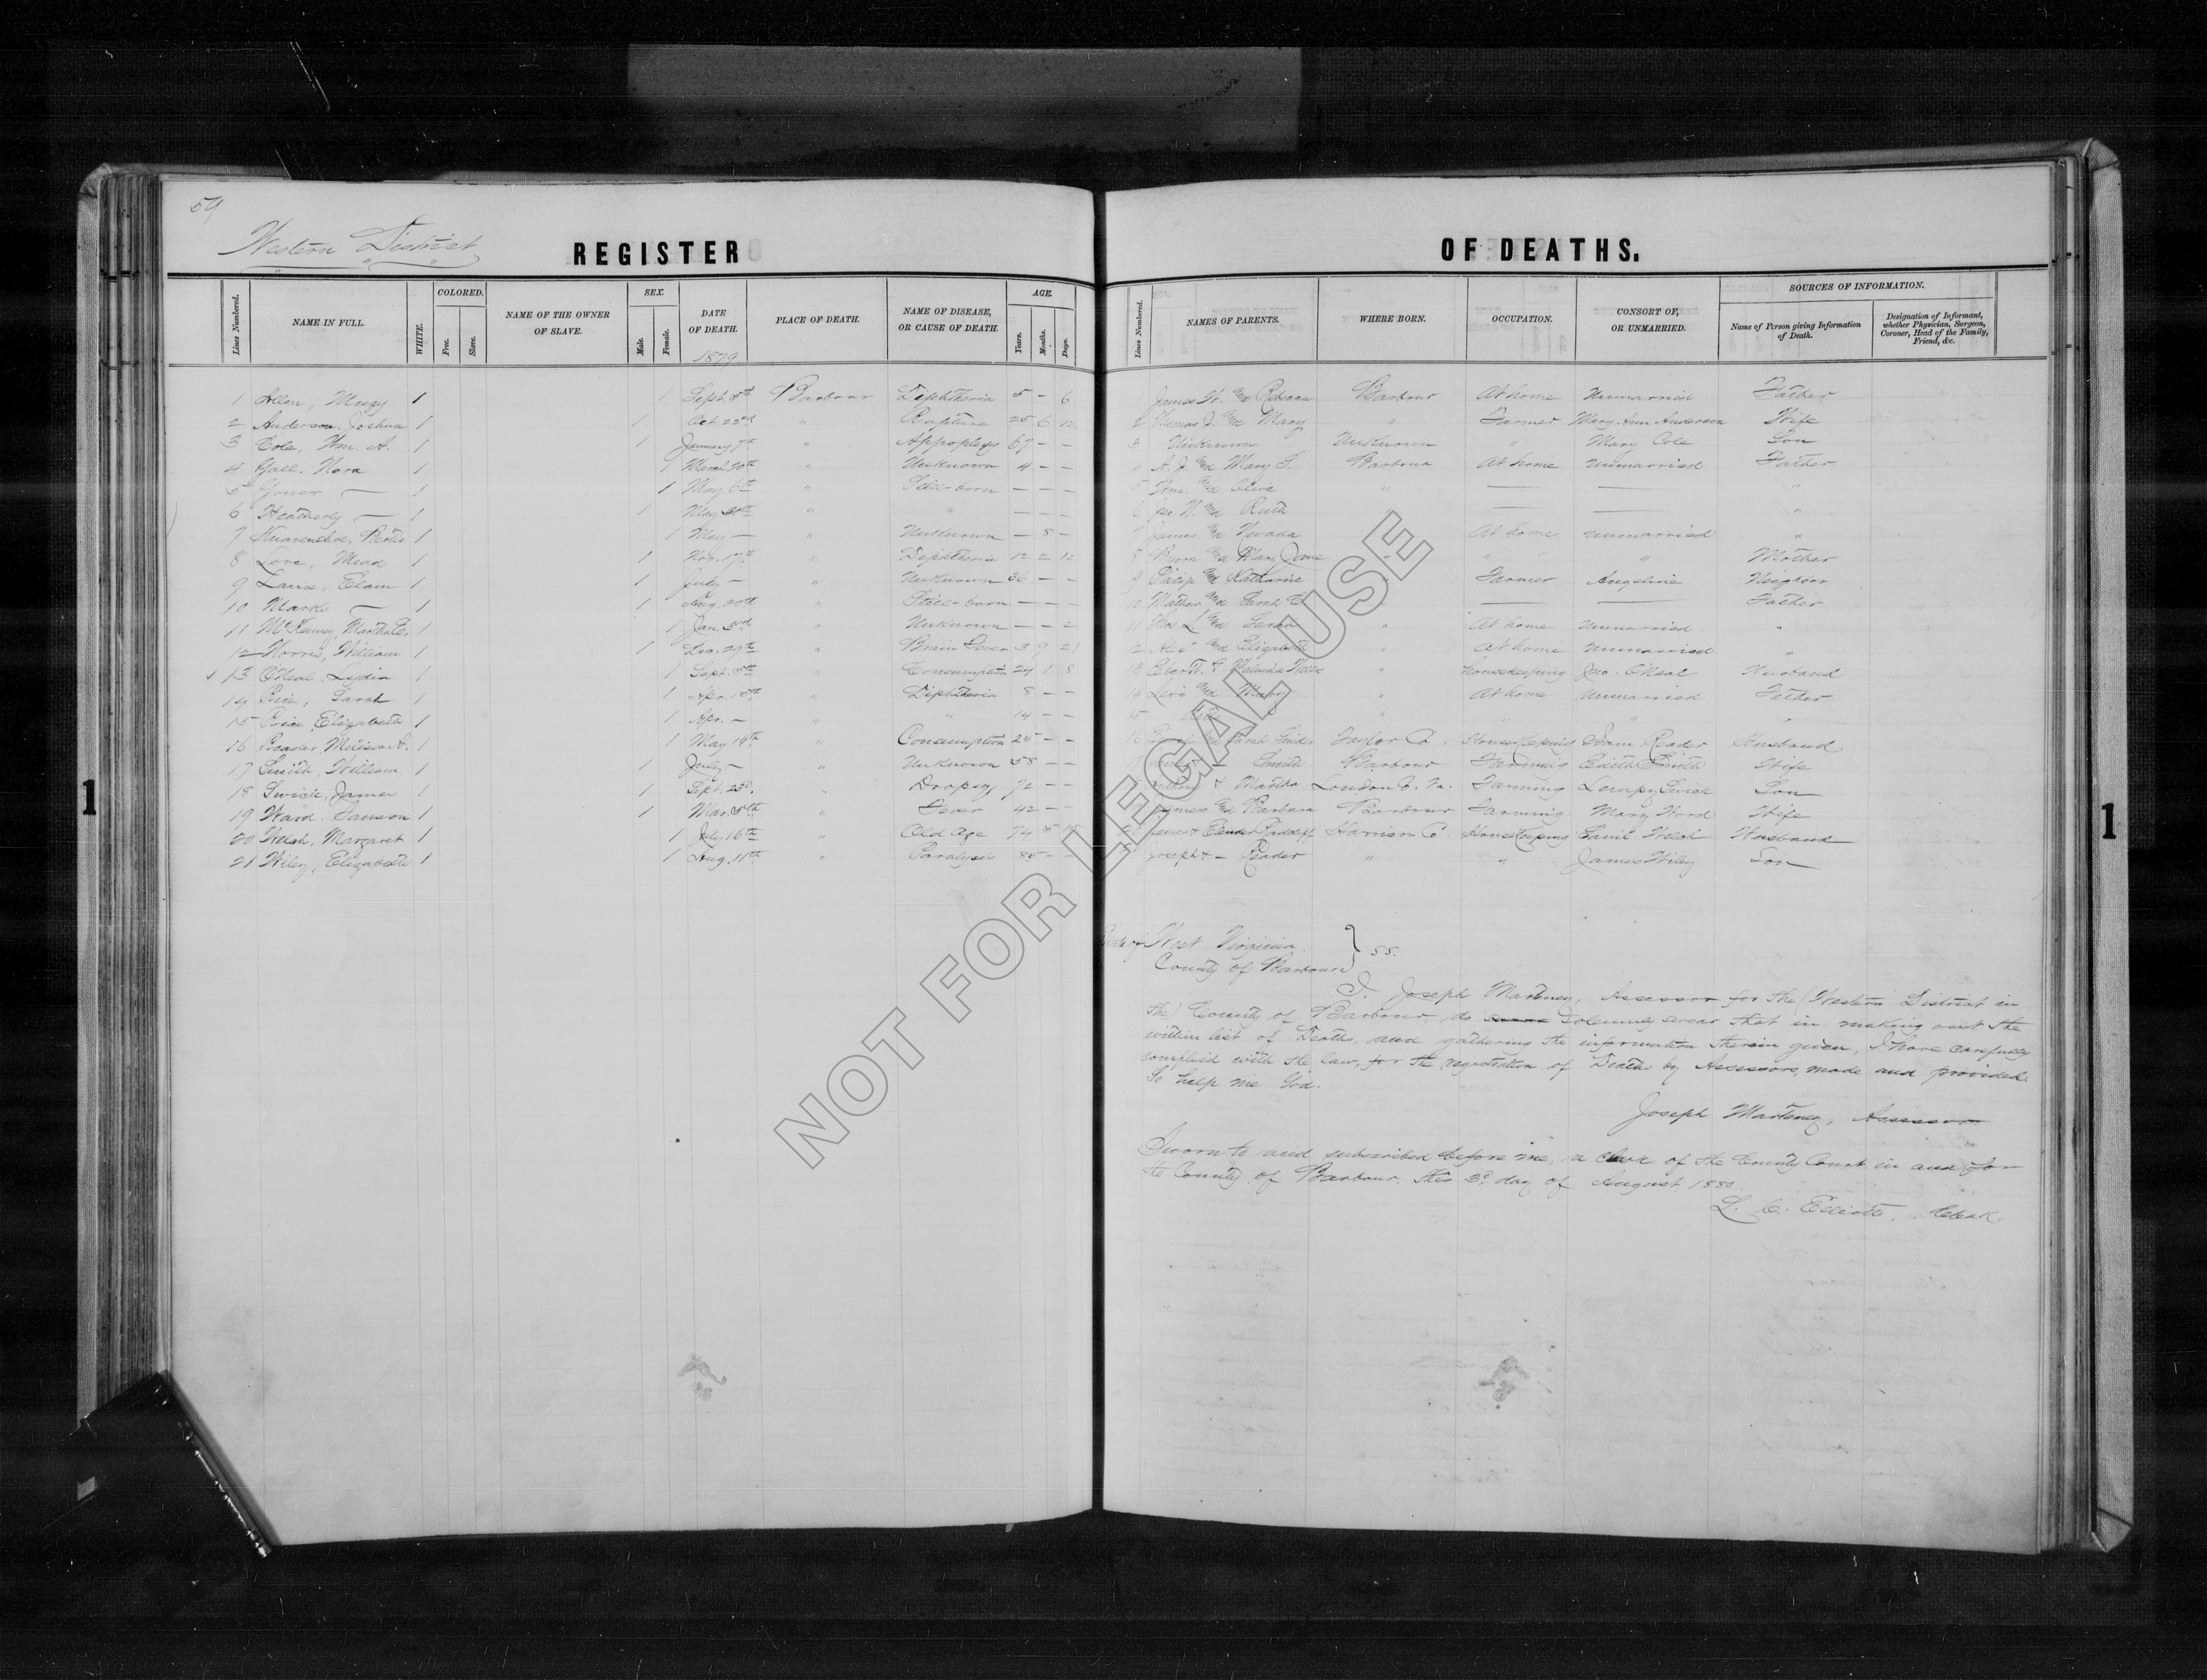 59
Western District
REGISTER OF DEATHS.
Lines Numbered. NAME IN FULL. WHITE. COLORED. Free. Slave. NAME OF THE OWNER OF SLAVE. SEX. Male. Female. DATE OF DEATH. 1879 PLACE OF DEATH. NAME OF DISEASE, OR CAUSE OF DEATH. AGE. Years. Months. Days.
Lines Numbered. NAMES OF PARENTS. WHERE BORN. OCCUPATION. CONSORT OF, OR UNMARRIED. SOURCES OF INFORMATION. Name of Person giving Information of Death. Designation of Informant, whether Physician, Surgeon, Coroner, Head of the Family, Friend, &c.
1 Allen, 1 1 Sept. 5th Barbour Diphtheria 5 - 6 Rebecca Barbour At home Unmarried Father
2 Anderson, Joshua 1 1 Oct. 23rd " Rupture 25 6 12 Thomas J. and Mary " Farmer Mary Ann Anderson Wife
3 Cole, Wm. A. 1 1 January 7th " Appoplexy 67 - - 3 Unknown Unknown " Mary Cole Son
4 Gall, Nora 1 1 March 20th " Unknown 4 - - A. J. and Mary S. Barbour At home Unmarried Father
5 — 1 1 May 6th " Still-born — — — 5 and Olive " — — "
6 Heatherly — 1 1 May " " — — — 6 Jno. W. and Ruth — — "
7 1 1 May — " Unknown - 8 - 7 James and Nevada At home Unmarried "
8 Love, 1 1 Nov. 17th " Diphtheria 12 2 12 8 and Mary Jane " " " Mother
9 Lance, Elam 1 1 July — " Unknown 36 - - 9 Philip and Katharine Farmer Angeline Neighbor
10 Marks — 1 1 Aug. 20th " Still-born — — — 10 Mathew and Sarah E. — — Father
11 1 1 Jan. 3rd " Unknown - - 2 Thos. L. and Sarah " At home Unmarried "
12 Norris, William 1 1 Dec. 29th " Brain Fever 3 9 21 12 Alex and Elizabeth " At home Unmarried "
13 O'Neal, Lydia 1 1 Sept. 5th " Consumption 24 1 8 13 & Malinda " Housekeeping Jno. O'Neal Husband
14 Rice, Sarah 1 1 Apr. 18th " Diphtheria 8 - - 14 Levi and Mary " At home Unmarried Father
15 Rice, Elizabeth 1 1 Apr. — " " 14 - - 15 " " " "
16 Reader, Melissa A. 1 1 May 19th " Consumption 25 - - 16 and Sarah Taylor Co. Housekeeping Reader Husband
17 Smith, William 1 1 July — " Unknown 58 - - Smith Barbour Farming Edith Smith Wife
18 Swick, James 1 1 Sept. 23d. " Dropsy 72 - - & Martha Farming Swick Son
19 Ward, Sanson 1 1 Mar. " Fever 42 - - James and Barbara Barbour Farming Mary Ward Wife
20 Welsh, Margaret 1 1 July 16th " Old Age 74 5 Harrison Co Housekeeping Husband
21 Wiley, Elizabeth 1 1 Aug. 11th " Paralysis 85 - - Joseph & — Reader " " James Wiley Son
State of West Virginia
County of Barbour } SS.
I, Joseph Marteney, Assessor for the (Western District in
the) County of Barbour, do solemnly swear that in making out the
within list of Death, and gathering the information therein given, I have carefully
complied with the law, for the registration of Deaths by Assessors, made and provided.
So help me God.
Joseph Marteney, Assessor
Sworn to and subscribed before me, a clerk of the County Court in and for
the County of Barbour, this 3d. day of August, 1880.
L. C. Elliott, Clerk
NOT FOR LEGAL USE
1
1